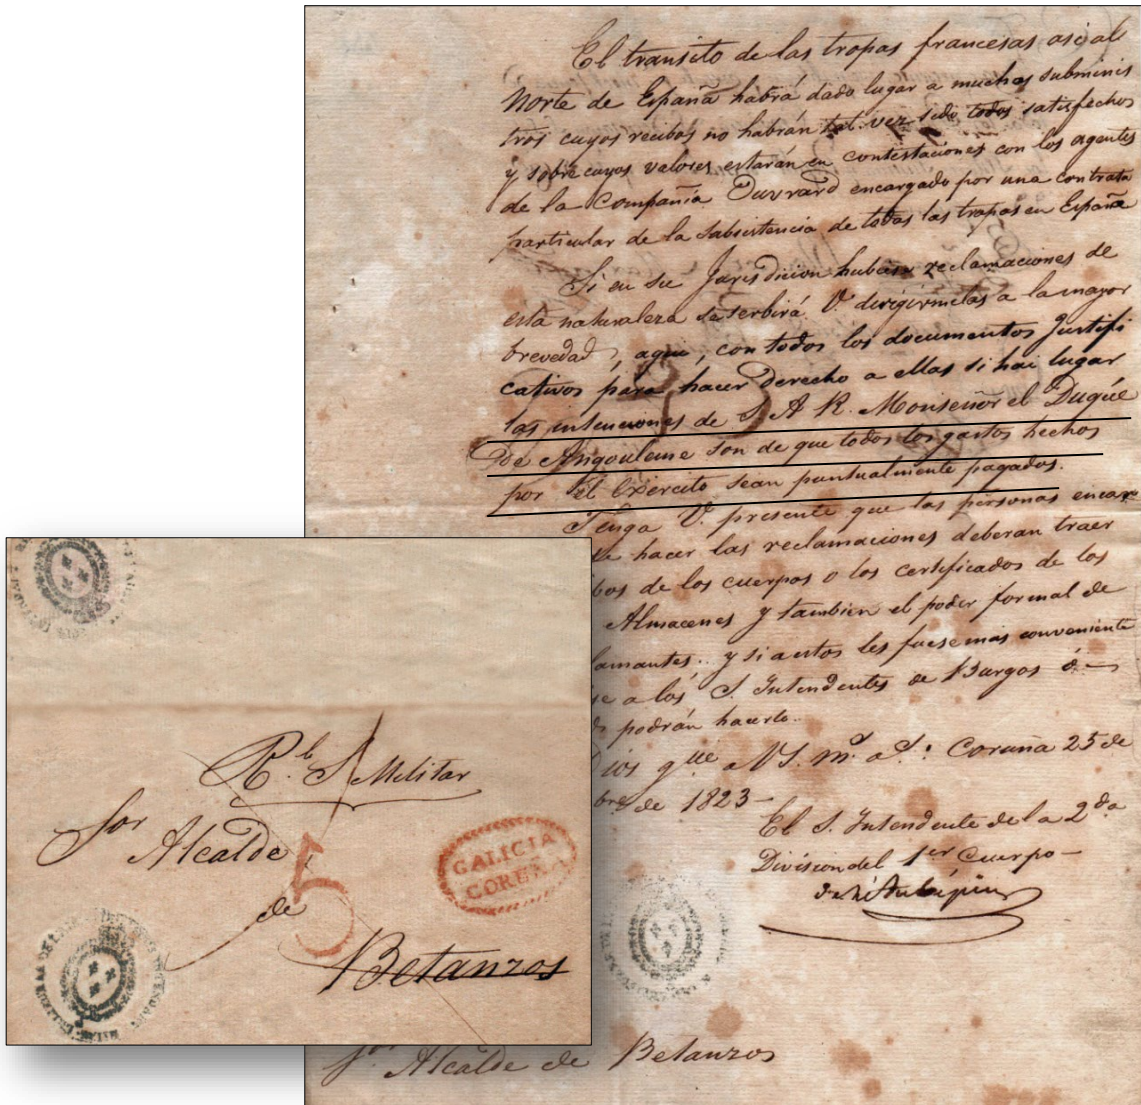 El transito de las tropas francesas acia al
Norte de España habrá dado lugar a muchos subminis
tros cuyos recibos no habrán tal vez sido todos satisfechos
y sobre cuyos valores estarán en contestaciones con los agentes
de la Compañia Ouvrard encargado por una contrata
particular de la subsistencia de todas las tropas en España
Si en su Jurisdicion hubiese reclamaciones de
esta naturaleza se serbirá V. dirigirmelas a la mayor
brevedad, aqui, con todos los documentos Justifi
cativos para hacer derecho a ellas si hai lugar
las intenciones de S. A. R. Monseñor el Duqúe
de Angouleme son de que todos los gastos hechos
por el Exercito sean puntualmente pagados.
Tenga V. presente que las personas encar
de hacer las reclamaciones deberan traer
bos de los cuerpos o los certificados de los
Almacenes y tambien el poder formal de
lamantes.. y si a estos les fuese mas conveniente
se a los S. Intendentes de Burgos ó
podrán hacerlo.
Dios gue a V S. ms. as. Coruña 25 de
bre de 1823
El S. Intendente de la 2da
Division del 1er Cuerpo
Sor Alcalde de Betanzos
Rl. S. Militar
Sor Alcalde
de
Betanzos
5
GALICIA
CORUÑA